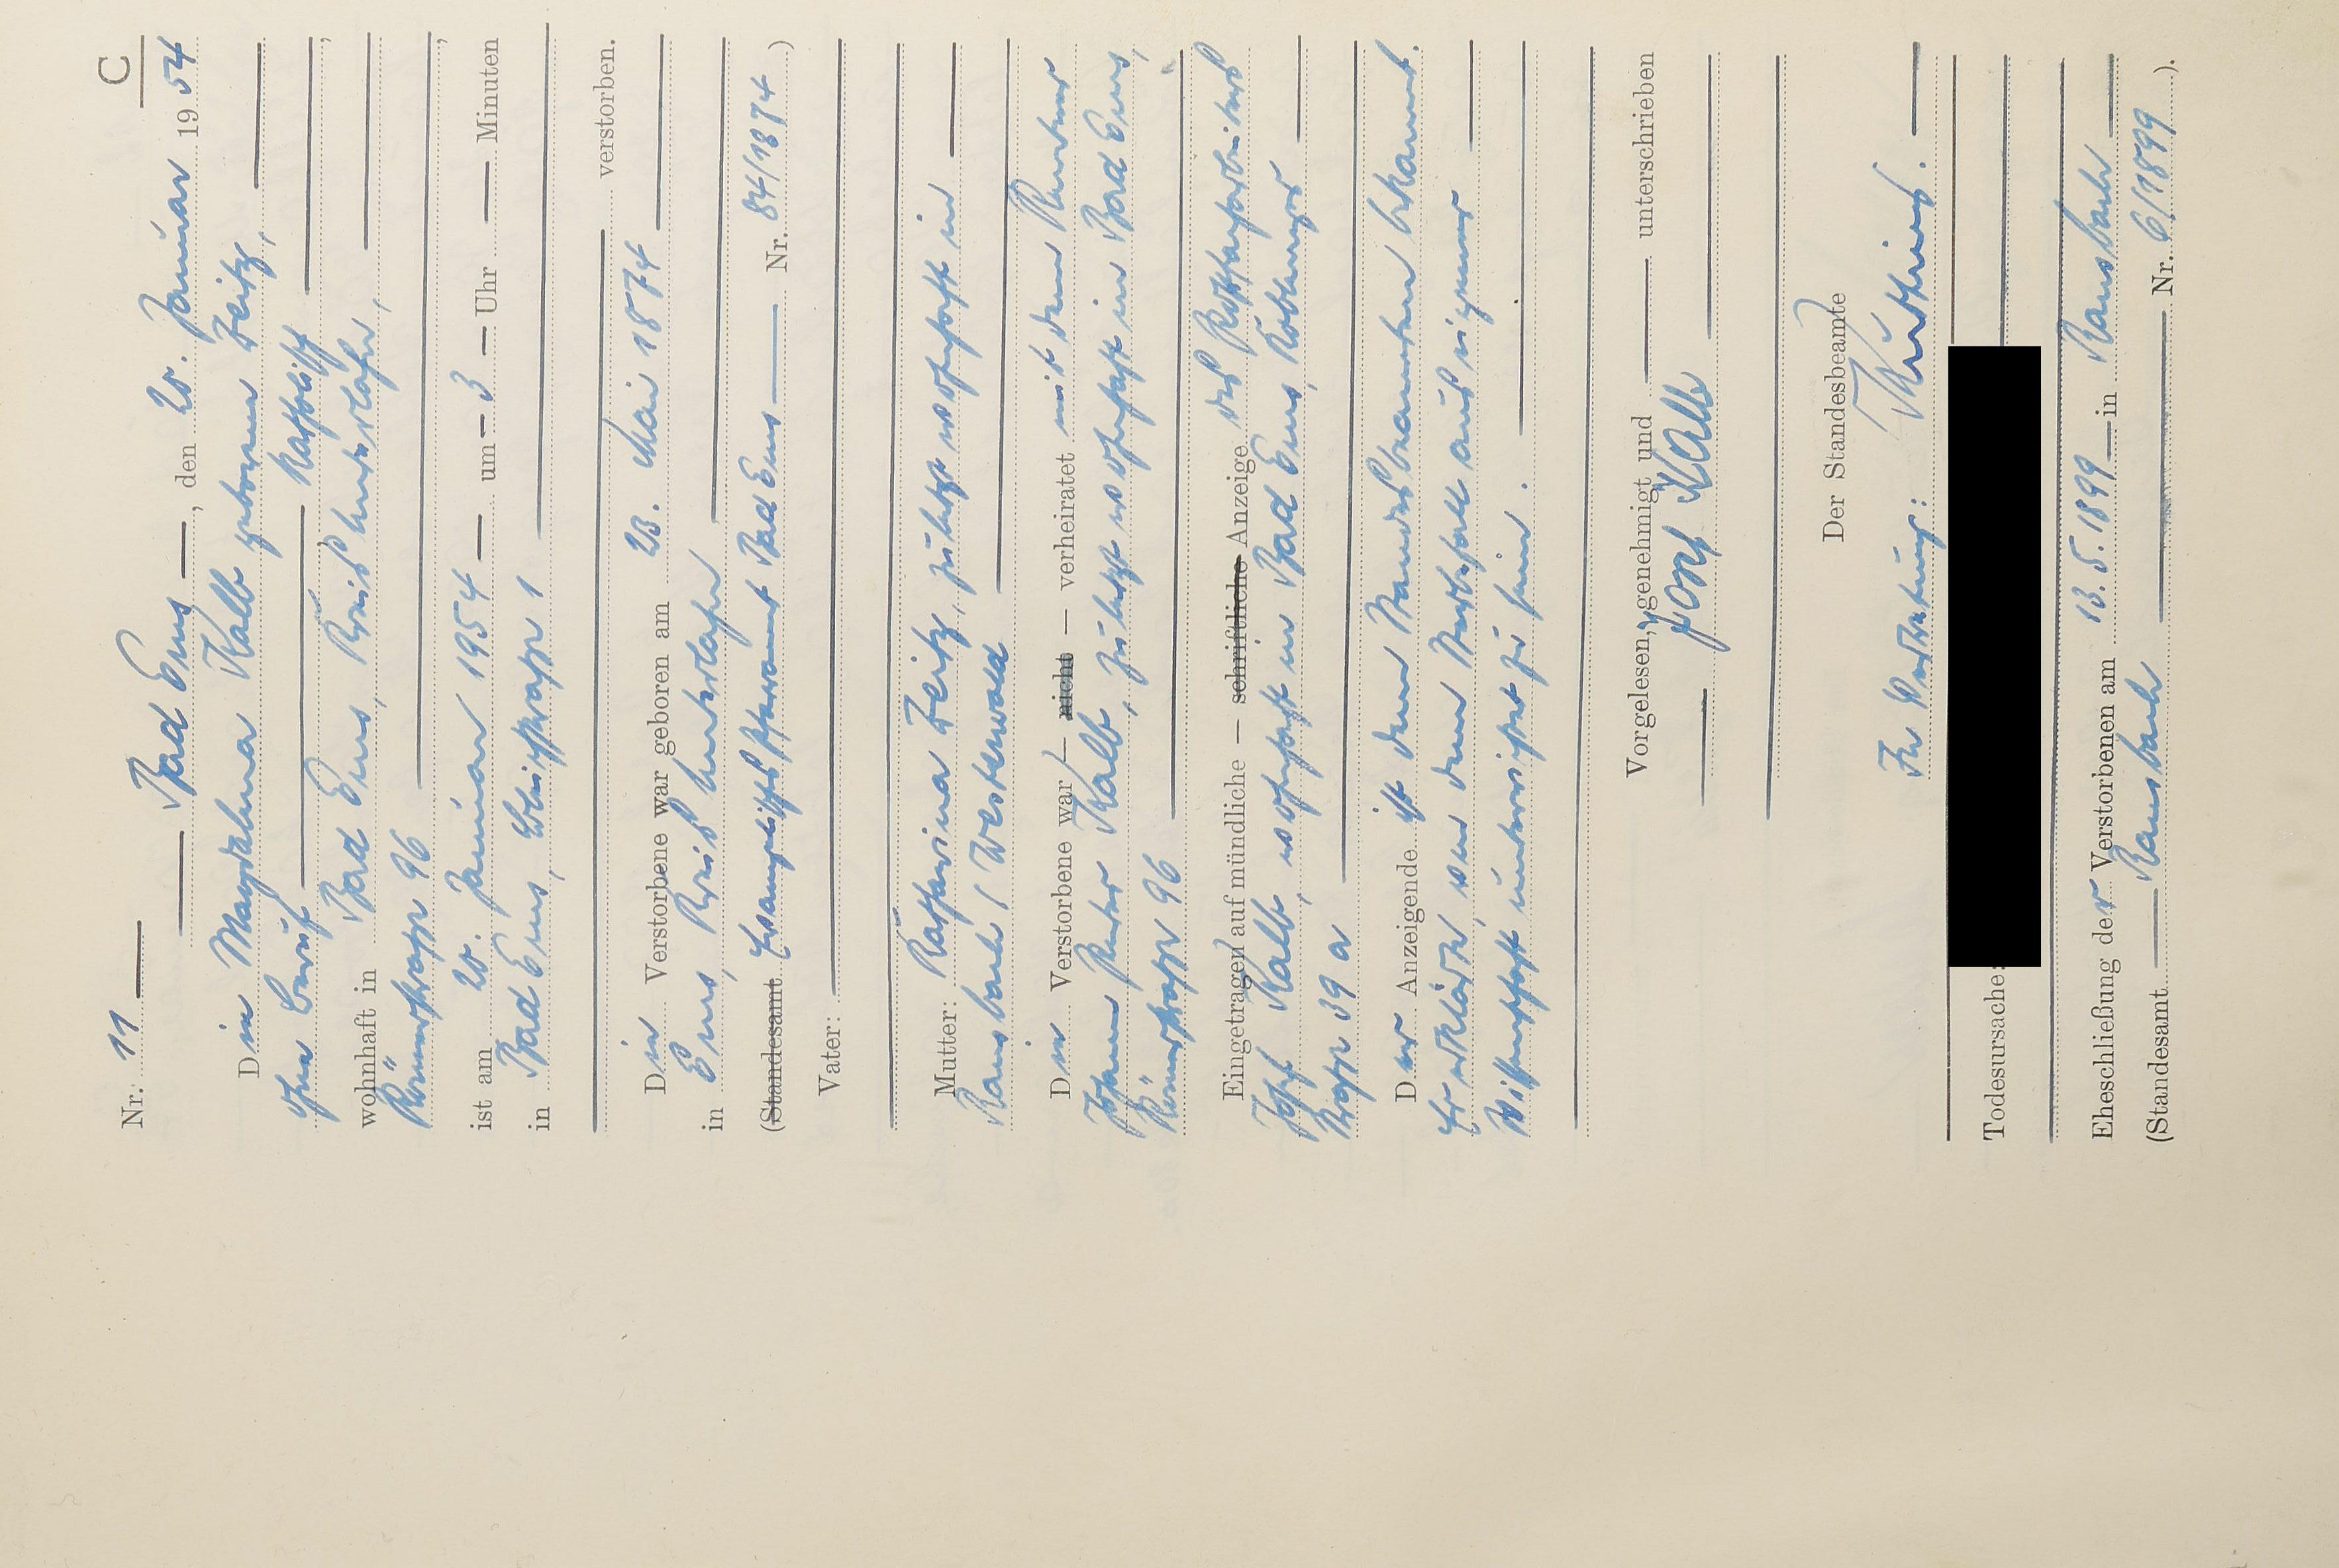 C
Nr. 11
Bad Ems, den 20. Januar 1954
Die Magdalena Kalb geborene Zeitz,
ohne Beruf katholisch,
wohnhaft in Bad Ems, Kreis Unterlahn,
Römerstraße 96,
ist am 20. Januar 1954 um 3 Uhr Minuten
in Bad Ems, 1 verstorben.
Die Verstorbene war geboren am 23. Mai 1874
in Ems, Kreis Unterlahn
(Standesamt Evangelisches Pfarramt Bad Ems Nr. 84/1874)
Vater:
Mutter: Katharina Zeitz, zuletzt wohnhaft in
Ransbach / Westerwald
Die Verstorbene war — nicht — verheiratet mit dem Rentner
Johann Peter Kalb, zuletzt wohnhaft in Bad Ems,
Römerstraße 96
Eingetragen auf mündliche — schriftliche Anzeige des
Josef Kalb, wohnhaft in Bad Ems, Koblenzer
Straße 39 a
Der Anzeigende ist dem Standesbeamten bekannt.
Er erklärte, von dem Sterbefall aus eigener
Wissenschaft unterrichtet zu sein.
Vorgelesen, genehmigt und unterschrieben
Josef Kalb
Der Standesbeamte
In Vertretung:
Todesursache:
Eheschließung der Verstorbenen am 13.5.1899 in Ransbach
(Standesamt Ransbach Nr. 6/1899).